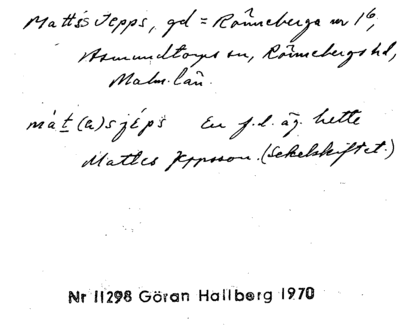 Mattss Jepps, gd = Rönneberga nr 16,
Asmundtorps sn, Rönnebergs hd,
Malm. län.
màt(a)sjéps En f.d. äg. hette
Mattes Jeppsson. (Sekelskiftet.)
Nr 11298 Göran Hallberg 1970